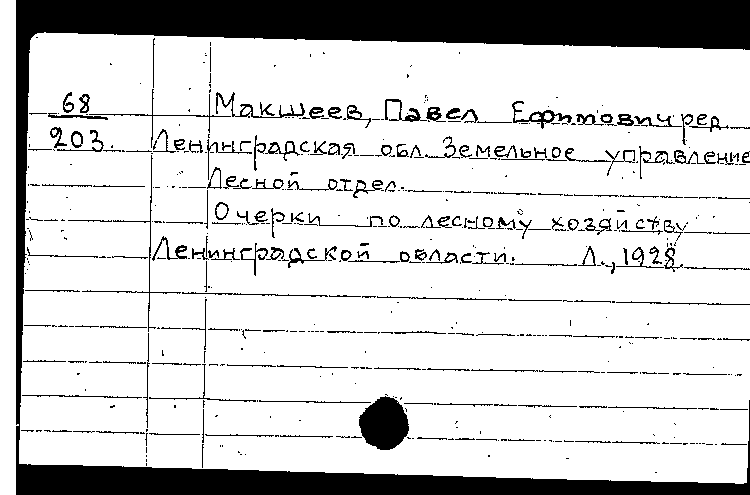 68
203.
Макшеев, Павел Ефимович ред.
Ленинградская обл. Земельное управление
Лесной отдел.
Очерки по лесному хозяйству
Ленинградской области. Л., 1928.